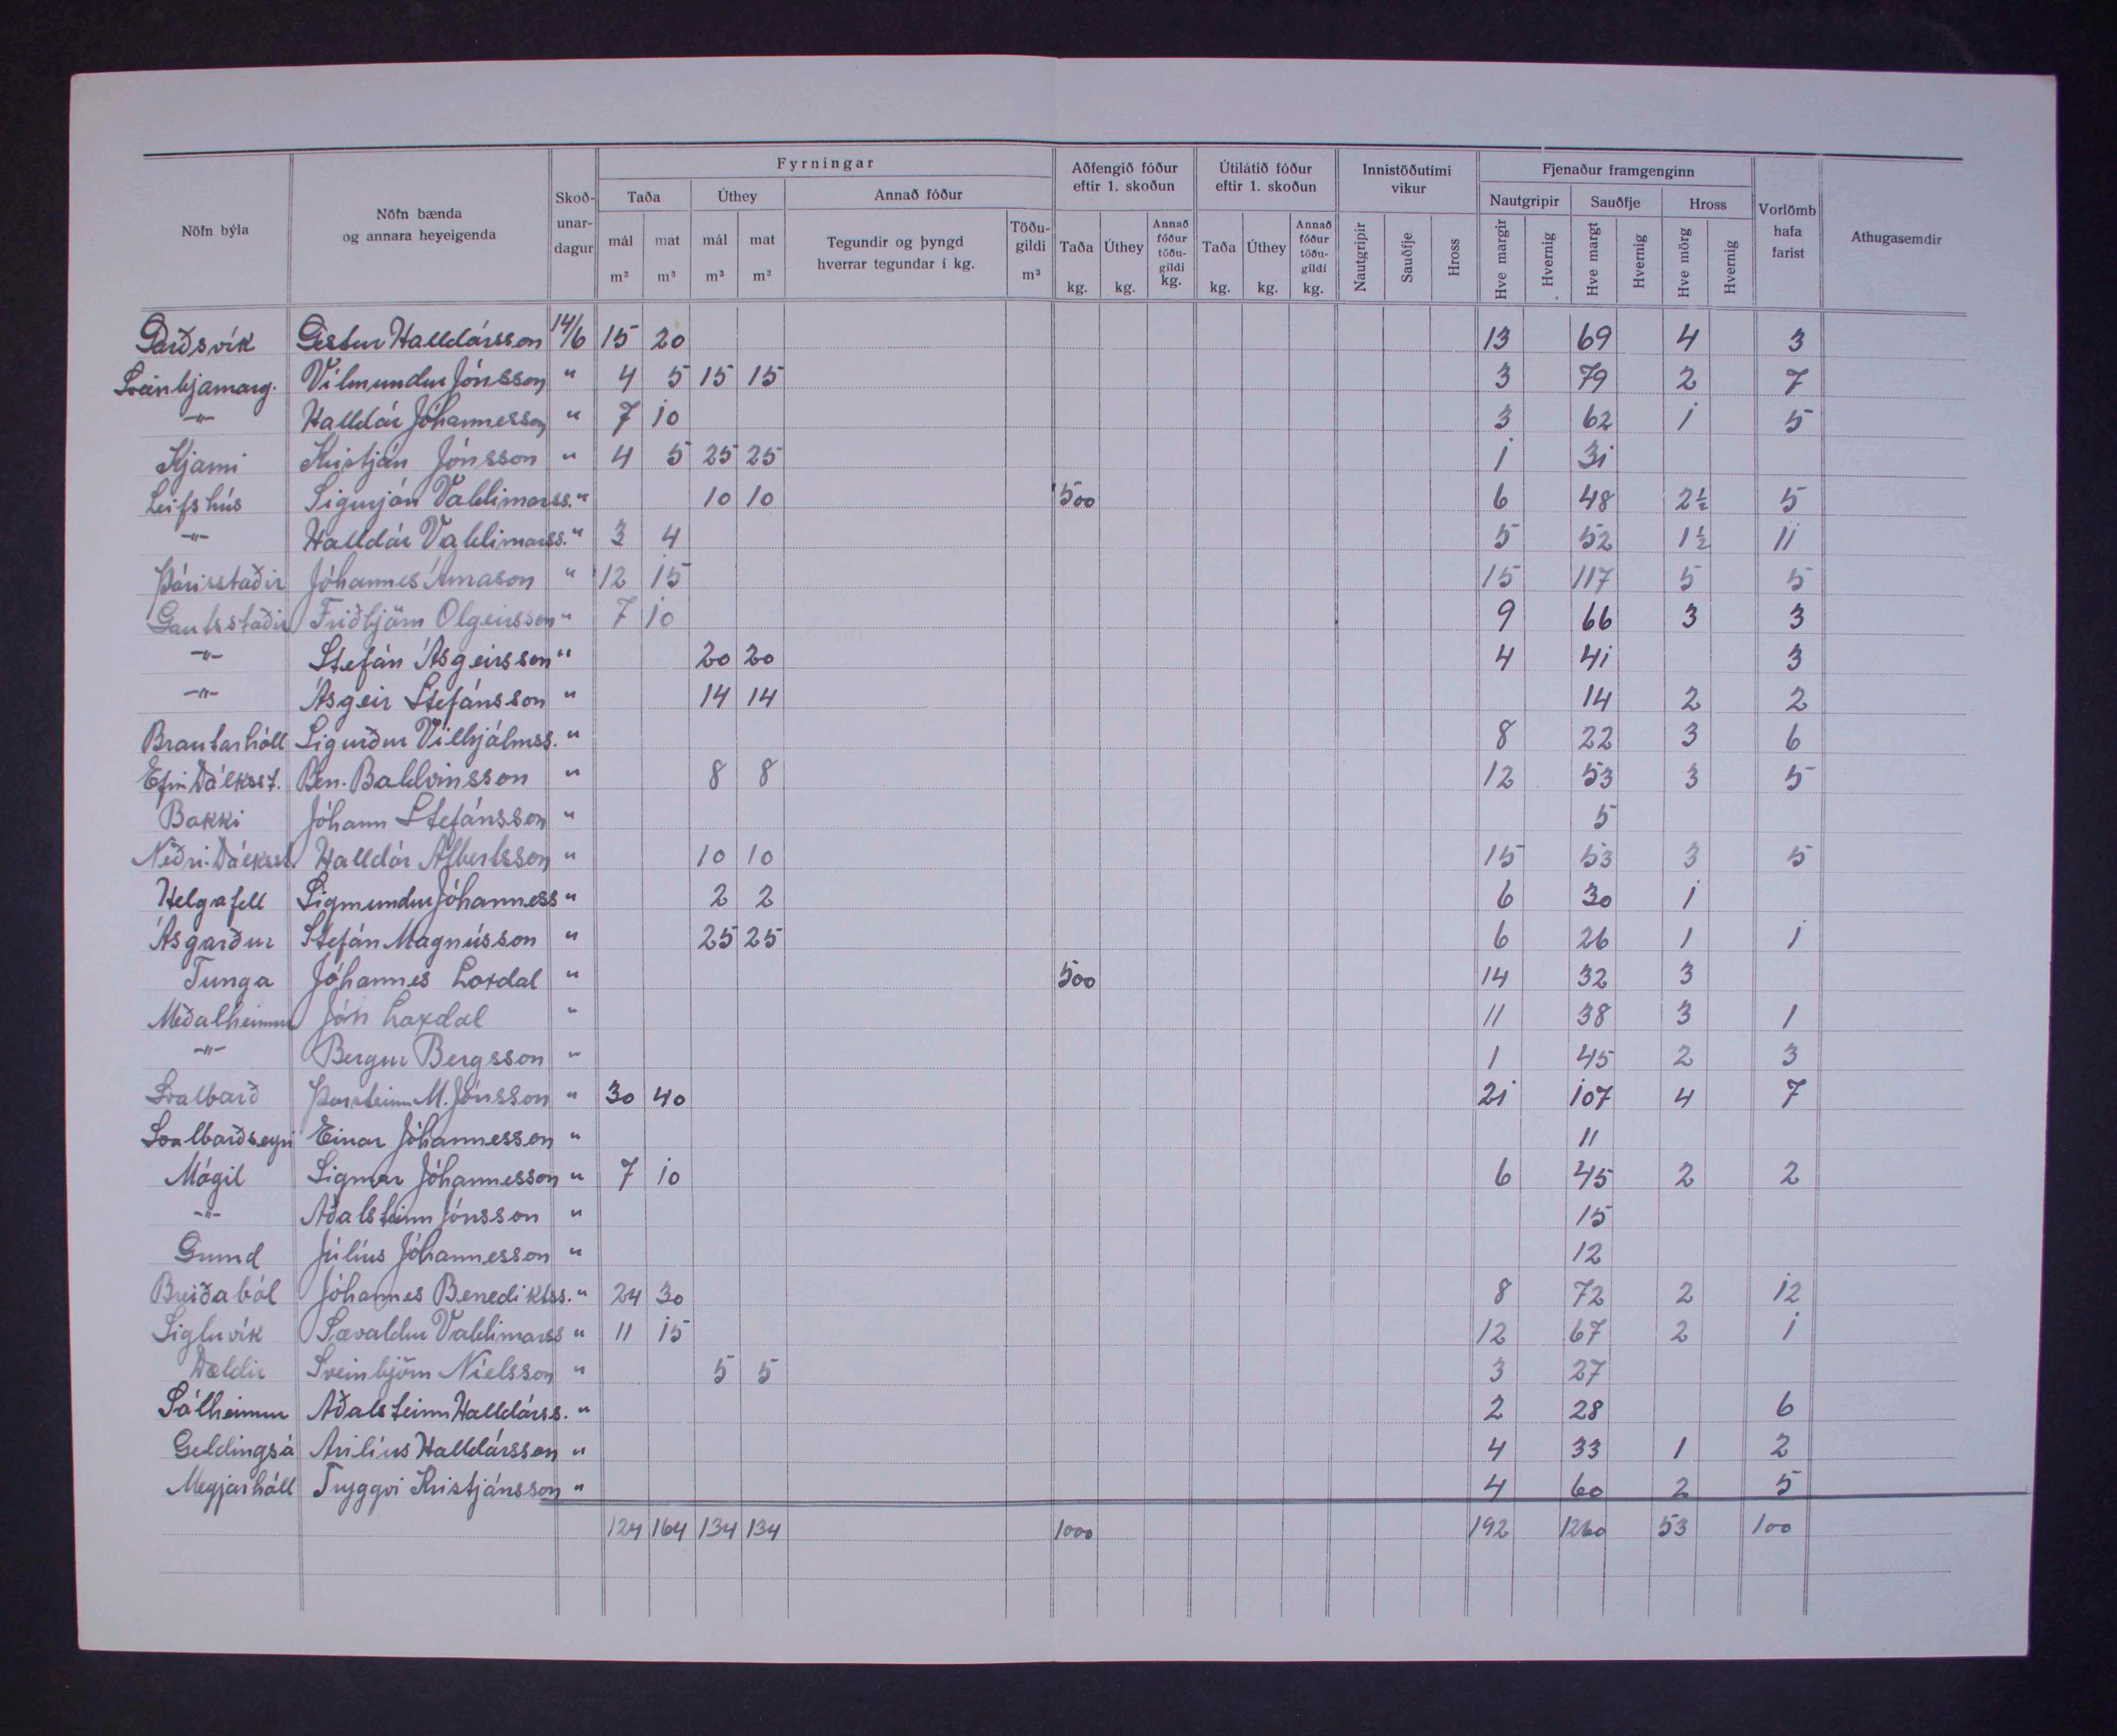 Fyrningar
Aðfengið fóður eftir 1. skoðun
Útilátið fóður eftir 1. skoðun
Innistöðutími vikur
Fjenaður framgenginn
Nöfn býla
Nöfn bænda og annara heyeigenda
Skoð-unar-dagur
Taða
Úthey
Annað fóður
Nautgripir
Sauðfje
Hross
Vorlömb hafa farist
Athugasemdir
mál m³
mat m³
mál m³
mat m³
Tegundir og þyngd hverrar tegundar í kg.
Töðu-gildi m³
Taða kg.
Úthey kg.
Annað fóður töðu-gildi kg.
Taða kg.
Úthey kg.
Annað fóður töðu-gildi kg.
Nautgripir
Sauðfje
Hross
Hve margir
Hvernig
Hve margt
Hvernig
Hve mörg
Hvernig
Garðsvík Gestur Halldórsson 14/6 15 20 13 69 4 3
Sveinbjarnarg. Vilmundur Jónsson " 4 5 15 15 3 79 2 7
-"- Halldór Jóhannesson " 7 10 3 62 1 5
Kjarni Kristján Jónsson " 4 5 25 25 1 31
Leifshús Sigurjón Valdimarss. " 10 10 500 6 48 2½ 5
-"- Halldór Valdimarss. " 3 4 5 52 1½ 11
Þórisstaðir Jóhannes Árnason " 12 15 15 117 5 5
Gautsstaðir Friðbjörn Olgeirsson " 7 10 9 66 3 3
-"- Stefán Ásgeirsson " 20 20 4 41 3
-"- Ásgeir Stefánsson " 14 14 14 2 2
Brautarhóll Sigurður Vilhjálmss. " 8 22 3 6
Efri Dálksst. Ben. Baldvinsson " 8 8 12 53 3 5
Bakki Jóhann Stefánsson " 5
Neðri-Dálksst. Halldór Albertsson " 10 10 15 53 3 5
Helgafell Sigmundur Jóhanness " 2 2 6 30 1
Ásgarður Stefán Magnússon " 25 25 6 26 1 1
Tunga Jóhannes Laxdal " 500 14 32 3
Meðalheimur Jón Laxdal " 11 38 3 1
-"- Bergur Bergsson " 1 45 2 3
Svalbarð Þorsteinn M. Jónsson " 30 40 21 107 4 7
Svalbarðseyri Einar Jóhannesson " 11
Mógil Sigmar Jóhannesson " 7 10 6 45 2 2
-"- Aðalsteinn Jónsson " 15
Grund Júlíus Jóhannesson " 12
Breiðaból Jóhannes Benediktss. " 24 30 8 72 2 12
Sigluvík Sævaldur Valdimarss " 11 15 12 67 2 1
Dældir Sveinbjörn Níelsson " 5 5 3 27
Sólheimur Aðalsteinn Halldórss. " 2 28 6
Geldingsá Árilíus Halldórsson " 4 33 1 2
Meyjarhóll Tryggvi Kristjánsson " 4 60 2 5
124 164 134 134 1000 192 1260 53 100